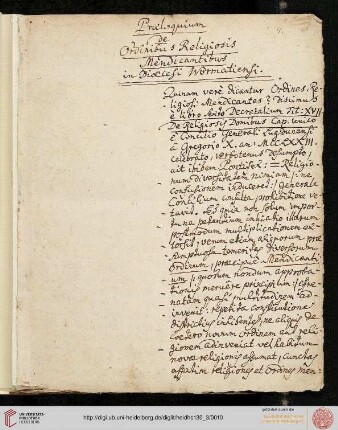 Præloquium
De
Ordinibus Religiosis
Mendicantibus
in Diœcesi Wormatiensi.
Quinam verè dicantur Ordines Re-
ligiosi Mendicantes? discimus
è libro sexto Decretalium Tit: XVII
De Religiosis Domibus Cap. unico
è Concilio Generali Lugdunensi
à Gregorio X. an: MCCLXXIII.
celebrato, verbotenus desumpto,
ait ibidem Pontifex: = Religio-
num diversitatem nimiam, ne
confusionem induceret, Generale
Concilium consulta prohibitione ve-
tavit. Sed quia non solum impor-
tuna petentium inhiatio illarum
postmodum multiplicationem ex-
torsit, verum etiam aliquorum præ-
sumptuosa temeritas diversorum
Ordinum, præcipuè Mendicanti-
um, quorum nondum approba-
tionis meruere principium, effre-
natam quasi multitudinem ad-
invenit: repetita constitutione
districtius inhibentes, ne aliquis de
cœtero novum ordinem aut reli-
gionem adinveniat vel habitum
novæ religionis assumat, cunctas
affatim religiones et Ordines men-
UNIVERSITÄTS-
BIBLIOTHEK
HEIDELBERG
http://digi.ub.uni-heidelberg.de/diglit/heidhs136_3/0019